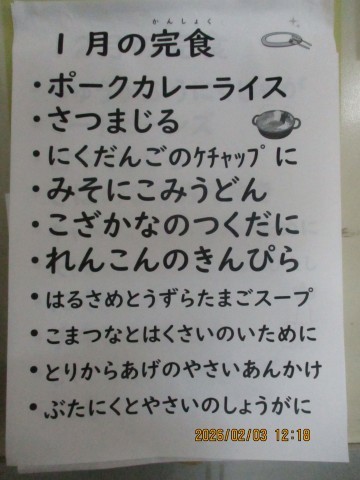 かんしょく
1月の完食
・ポークカレーライス
・さつまじる
・にくだんごのｹﾁｬｯﾌﾟに
・みそにこみうどん
・こざかなのつくだに
・れんこんのきんぴら
・はるさめとうずらたまごスープ
・こまつなとはくさいのいために
・とりからあげのやさいあんかけ
・ぶたにくとやさいのしょうがに
2026/02/03 12:18